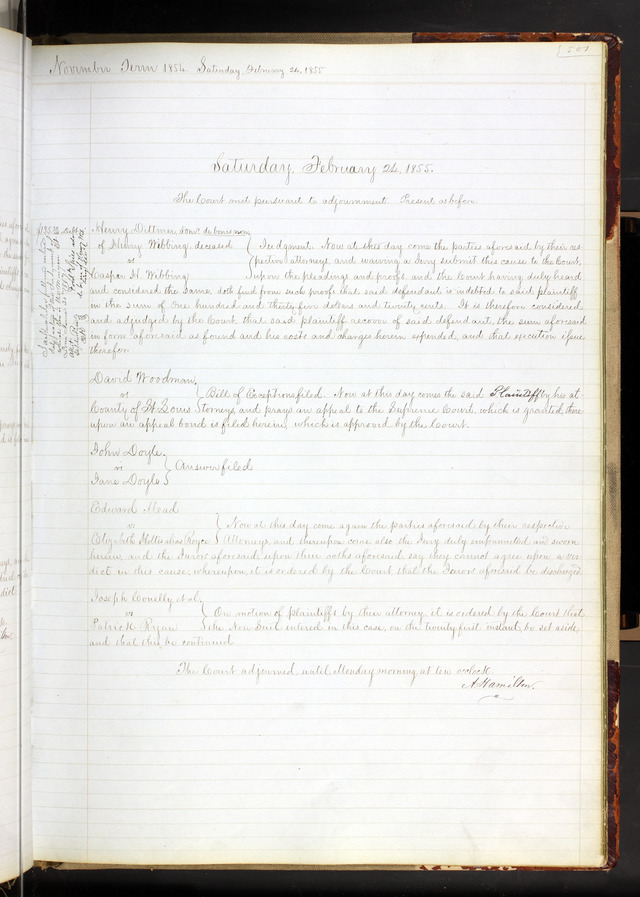 501
November Term 1854. Saturday February 24, 1855
Saturday, February 24, 1855.
The Court met pursuant to adjournment. Present as before.
Henry Dittmer, de bonis non
of Henry Wibbing deceased { Judgment. Now at this day come the parties aforesaid by their res
vs pective attorneys and waiving a Jury submit this cause to the Court,
Casper H. Wibbing upon the pleadings and proofs, and the Court having duly heard
and considered the same, doth find from such proofs that said defendant is indebted to said plaintiff
in the sum of One hundred and thirty five dollars and twenty cents. It is therefore considered
and adjudged by the Court that said plaintiff recover of said defendant, the sum aforesaid
in form aforesaid as found and his costs and charges herein expended, and that execution issue
therefor
David Woodman,
vs { Bill of Exceptions filed. Now at this day comes the said Plaintiff by his at
County of St Louis torneys, and prays an appeal to the Supreme Court, which is granted there
upon an appeal bond is filed herein, which is approved by the Court.
John Doyle,
vs } Answer filed
Jane Doyle
Edward Mead
vs { Now at this day come again the parties aforesaid by their respective
Elizabeth alias Royce Attorneys, and thereupon come also the Jury duly empannelled and sworn
herein, and the Jurors aforesaid upon their oaths aforesaid say they cannot agree upon a ver
dict in this cause, whereupon, it is ordered by the Court that the Jurors aforesaid be discharged.
Joseph Conelly, et al,
vs { On motion of plaintiffs by their attorney it is ordered by the Court that
Patrick Ryan the Non Suit entered in this case, on the twenty first instant, be set aside
and that this be continued
The Court adjourned until Monday morning at ten o'clock.
A. Hamilton.